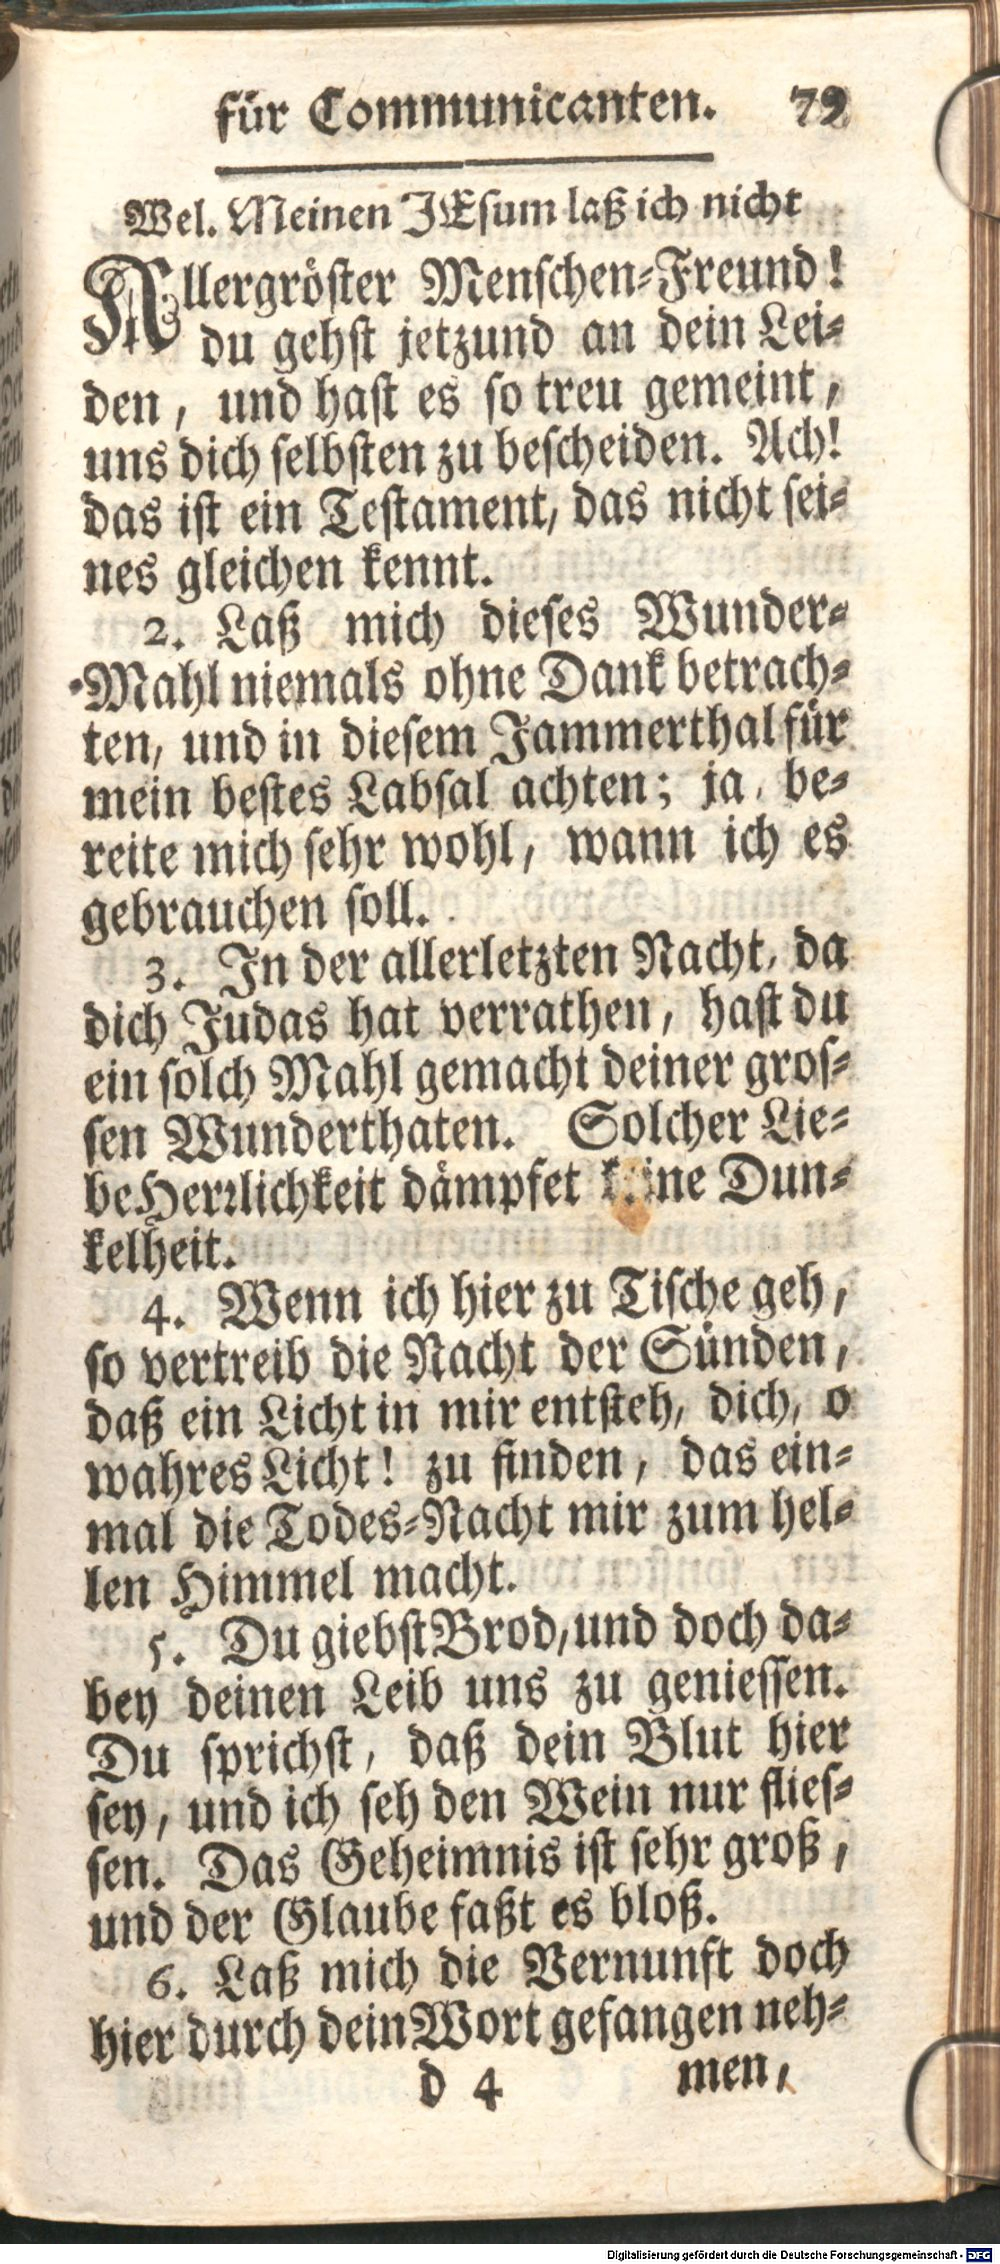 für Communicanten. 79
Mel. Meinen JEsum laß ich nicht
Allergröster Menschen-Freund!
du gehst jetzund an dein Lei-
den, und hast es so treu gemeint,
uns dich selbsten zu bescheiden. Ach!
das ist ein Testament, das nicht sei-
nes gleichen kennt.
2. Laß mich dieses Wunder-
Mahl niemals ohne Dank betrach-
ten, und in diesem Jammerthal für
mein bestes Labsal achten; ja, be-
reite mich sehr wohl, wann ich es
gebrauchen soll.
3. In der allerletzten Nacht, da
dich Judas hat verrathen, hast du
ein solch Mahl gemacht deiner gros-
sen Wunderthaten. Solcher Lie-
be Herrlichkeit dämpfet keine Dun-
kelheit.
4. Wenn ich hier zu Tische geh,
so vertreib die Nacht der Sünden,
daß ein Licht in mir entsteh, dich, o
wahres Licht! zu finden, das ein-
mal die Todes-Nacht mir zum hel-
len Himmel macht.
5. Du giebst Brod, und doch da-
bey deinen Leib uns zu geniessen.
Du sprichst, daß dein Blut hier
sey, und ich seh den Wein nur flies-
sen. Das Geheimnis ist sehr groß,
und der Glaube faßt es bloß.
6. Laß mich die Vernunft doch
hier durch dein Wort gefangen neh-
d 4 men,
Digitalisierung gefördert durch die Deutsche Forschungsgemeinschaft - DFG